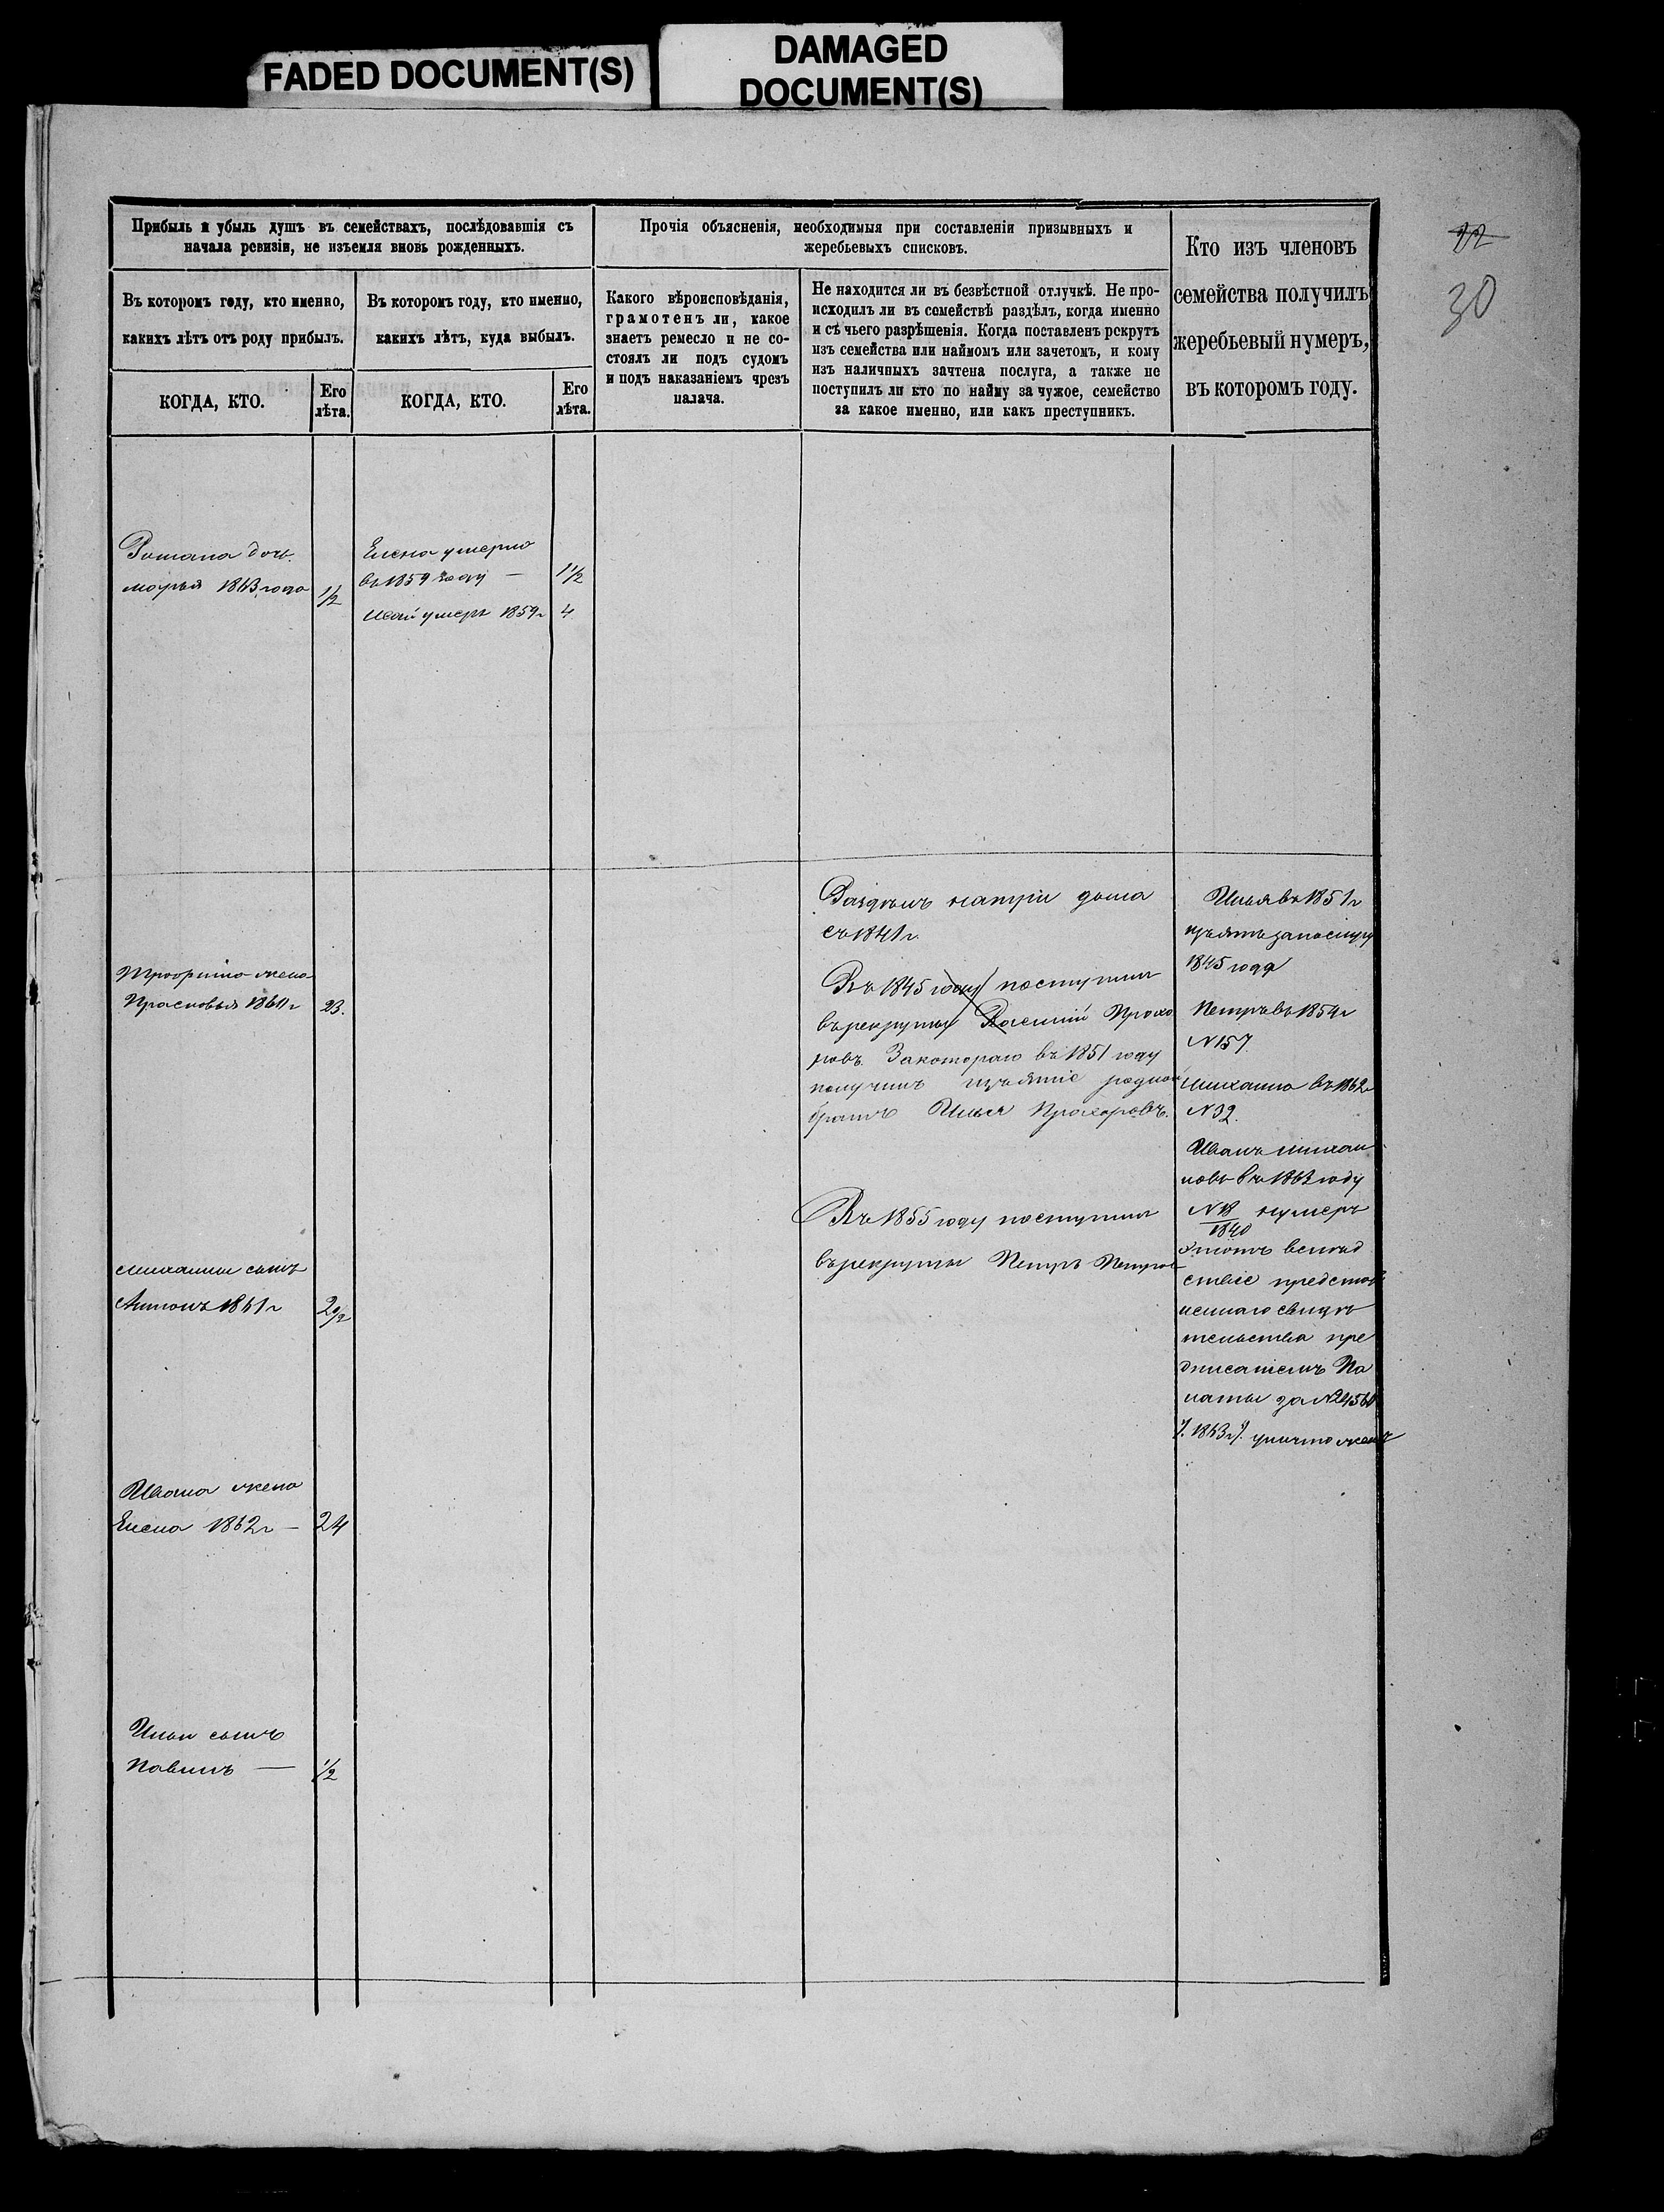 FADED DOCUMENT(S)
DAMAGED
DOCUMENT(S)
Прибыль и убыль душъ въ семействахъ, послѣдовавшія съ
начала ревизіи, не изъемля вновь рожденныхъ.
Прочія объясненія, необходимыя при составленіи призывныхъ и
жеребьевыхъ списковъ.
Кто изъ членовъ
семейства получилъ
жеребьевый нумеръ,
въ которомъ году.
22
30
Въ которомъ году, кто именно,
какихъ лѣтъ отъ роду прибылъ.
Въ которомъ году, кто именно,
какихъ лѣтъ, куда выбылъ.
Какого вѣроисповѣданія,
грамотенъ ли, какое
знаетъ ремесло и не со-
стоялъ ли подъ судомъ
и подъ наказаніемъ чрезъ
палача.
Не находится ли въ безвѣстной отлучкѣ. Не про-
исходилъ ли въ семействѣ раздѣлъ, когда именно
и съ чьего разрѣшенія. Когда поставленъ рекрутъ
изъ семейства или наймомъ или зачетомъ, и кому
изъ наличныхъ зачтена послуга, а также не
поступилъ ли кто по найму за чужое, семейство
за какое именно, или какъ преступникъ.
КОГДА, КТО.
Его
лѣта.
КОГДА, КТО.
Его
лѣта.
Романа дочь
марья 1863 года 1/2
Елена умерла
въ 1859 году — 1 1/2
Исай умеръ 1859 г 4
жена
Прасковья 1860 г 23.
Михаилы сынъ
Антонъ 1861 г 2 1/2
Ивана жена
Елена 1862 г — 24
Ильи сынъ
Павилъ — 1/2
Раздѣлъ дома
съ 1841 г.
Въ 1845 году поступилъ
въ рекруты Василий Прохо
ровъ. За котораго въ 1851 году
получилъ изъятіе родной
братъ Илья Прохоровъ.
Въ 1855 году поступилъ
въ рекруты Петръ Петров
Илья въ 1851 г
изъятъ за послугу
1845 года
Петръ въ 1854 г
N 157
Михаила въ 1862 г
N 32.
Иванъ Михаи
ловъ въ 1863 году
N 18 нумеръ
1840
этотъ вслѣд
ствіе представ
леннаго свидѣ
тельства пре
дписаніемъ Па
латы за N 24560
/. 1863 г /. уничтоженъ